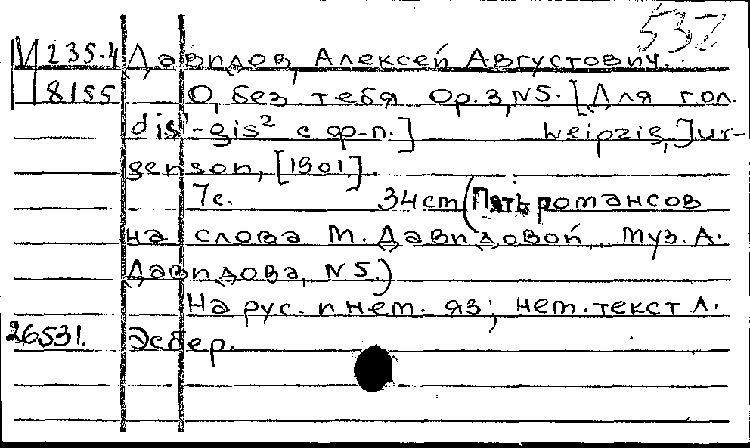 532
М 235.4 Давидов, Алексей Августович.
8155 О, без тебя Op. 3, N5. [Для гол.
dis¹-gis² с ф-п.] Leipzig, Jur-
genson, [1901].
7с. 34cm (Пять романсов
на слова М. Давидовой, муз. А.
Давидова, N5.)
На рус. и нем. яз; нем. текст Л.
26531. Эсбер.